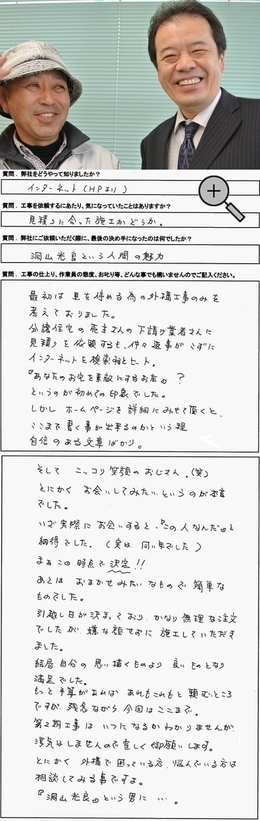 質問．弊社をどうやって知りましたか？
インターネット（HPより）
質問．工事を依頼するにあたり、気になっていたことはありますか？
見積りに合った施工かどうか。
質問．弊社にご依頼いただく際に、最後の決め手になったのは何でしたか？
洞山光良という人間の魅力
質問．工事の仕上り、作業員の態度、お叱り等、どんな事でも構いませんのでご記入ください。
最初は 車を停める為の外構工事のみを
考えておりました。
分譲住宅の売主さんの下請け業者さんに
見積りを依頼するも、中々返事が こずに
インターネットを検索 ヒット。
『あなたのお宅を素敵にするお店』？
というのが初めての印象でした。
しかし ホームページを詳細に みせて頂くと、
ここまで書く事が出来るのかという程
自信のある文章ばかり。
そして ニッコリ笑顔の おじさん。（笑）
とにかく お会いしてみたい。というのが本音
でした。
いざ実際に お会いすると、『この人なんだ』と
納得でした。（実は、同い年でした）
まぁ この時点で決定!!
あとは おまかせみたいなもので 簡単な
ものでした。
引越し日が決まっており、かなり無理な注文
でしたが、嫌な顔せずに 施工していただき
ました。
結局 自分の 思い描くものより 良いものとなり
満足でした。
もっと予算があれば あれもこれもと 頼むところ
ですが、残念ながら今回は ここまで。
第2期工事は いつになるか わかりませんが、
浮気は しませんので 宜しく 御願いします。
とにかく 外構で 困っている方、悩んでいる方は
相談してみる事ですよ。
『洞山光良』という男に…。